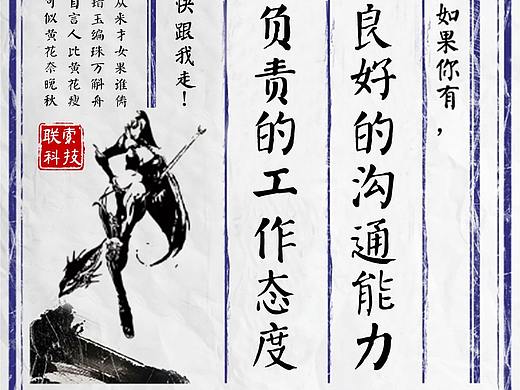 如果你有，
良好的沟通能力
负责的工作态度
快跟我走！
从来才女果谁俦
错玉编珠万斛舟
自言人比黄花瘦
可似黄花奈晚秋
联索科技